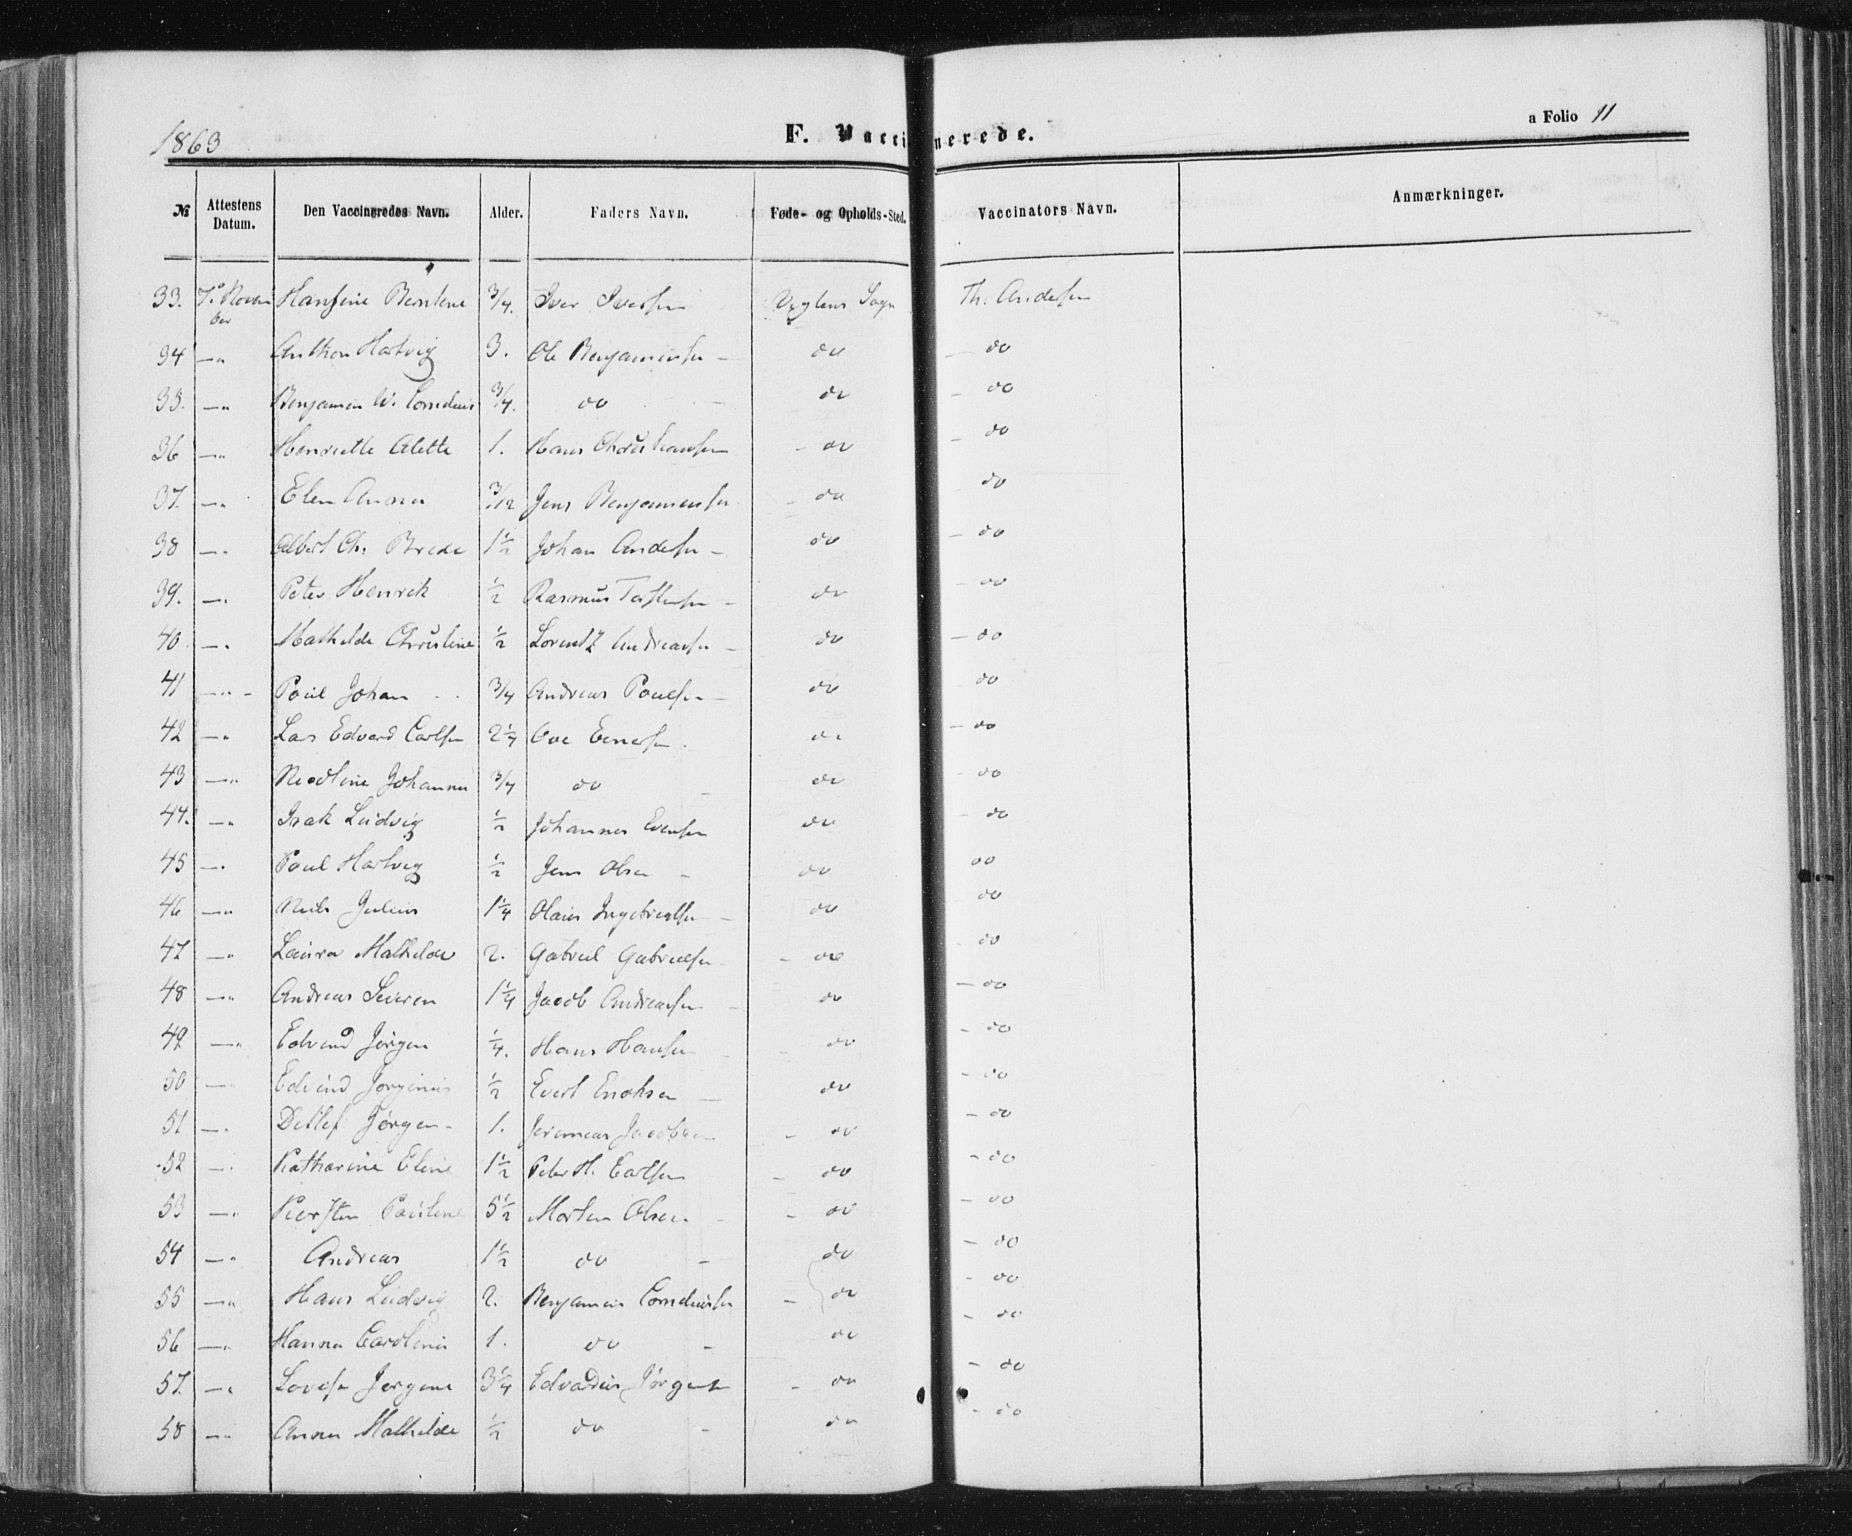 1863
F. Vaccinerede.
a Folio 11
№ Attestens Datum. Den Vaccineredes Navn. Alder. Faders Navn. Føde- og Opholds-Sted. Vaccinators Navn. Anmærkninger.
33. 7de November Hansine Bentine 3/4. Iver Iversen Sogn Th. Andersen
34 —" Anthon Hartvig 3. Ole Benjaminsen do do
35. —" Benjamin W. Cornelius 3/4. do do do
36 —" Henriette Alette 1. Hans Christiansen do do
37. —" Elen Anna 3/12 Jens Benjaminsen do do
38 —" Albert Chr. Brede 1½ Johan Andersen do do
39. —" Peter Henrik ½ Rasmus do do
40 —" Mathilde Christine ½ Lorentz Andreasen do do
41 —" Poul Johan 3/4 Andreas Poulsen do do
42 —" Lars Edvard Carlsen 2¼ Ove do do
43 —" Johanna 3/4 do do do
44. —" Isak Ludvig ½ Johannes Evensen do do
45 —" Poul Hartvig ½ Jens Olsen do do
46 —" Niels Julius 1¼ Hans Ingebrigtsen do do
47 —" Laura Mathilde 2. Gabriel Gabrielsen do do
48 —" Andreas Severin 1¼ Jacob Andreasen do do
49 —" Edvind Jørgen ¼. Hans Hansen do do
50 —" Edvind Jørginus ½ Evert Enoksen do do
51 —" Detlef Jørgen 1. Jeremias Jacobsen do do
52 —" Katharina Eline 1½ Peter H. Carlsen do do
53 —" Kiersten Pauline 5½ Morten Olsen do do
54 —" Andreas 1½ do do do
55 —" Hans Ludvig 2. Benjamin Corneliussen do do
56 —" Hanna Carolina 1. do do do
57. —" Lovise Jørgine 3¼ Edvardus Jørgensen do do
58 —" Anna Mathilde ½ do do do